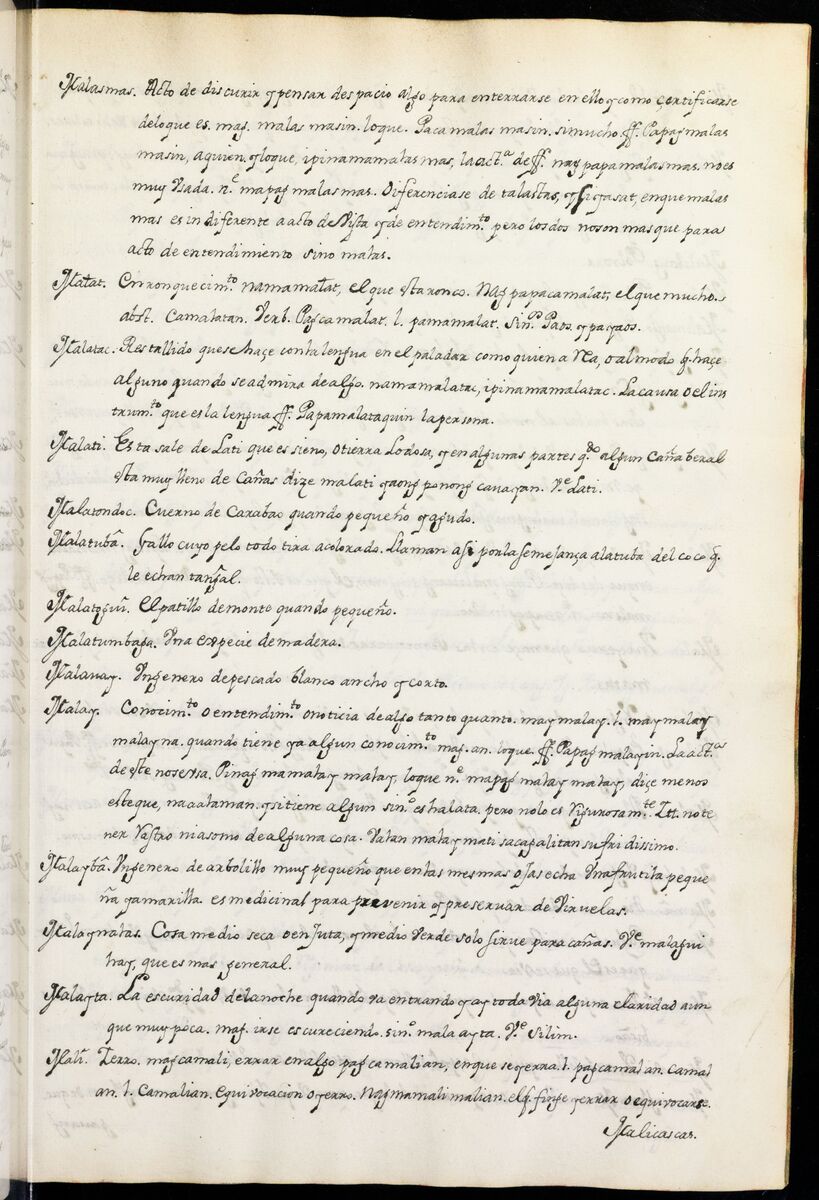 Malasmas. Acto de discurir y pensar despacio algo para enterrarse en ello y como çertificarse
deloque es. mag. malas masin. loque. Paca malas masin. simucho. ff. Papag malas
masin, aquien, y loque, ipinamamalas mas, la act.ª de ff. nag papa malasmas. no es
muy Vsada. n.e mapag malasmas. Diferenciase de talastas, y sigasat, enque malas
mas es indiferente a acto de Vista y de entendim.to pero los dos noson mas que para
acto de entendimiento sino malas.
Malat. Enronquecim.to namamalat, el que esta ronco. Nag papacamalat, el que mucho.
abst. Camalatan. Verb. Pagcamalat. l. pamamalat. sin.o Paos. y pagpaos.
Malatac. Restallido quese haçe conla lengua en el paladar como quien a Vea, o al modo q. haçe
alguno quando se admira de algo. namamalatac, ipinamamalatac. La causa o el ins
trum.to que es la lengua ff. Papamalataquin la persona.
Malati. Esta sale de Lati que es sieno, o tierra Lodosa, y en algunas partes q.do algun Cañaberal
esta muy lleno de Cañas dize malati yaong ponong cavayan. V.e Lati.
Malatondoc. Cuerno de Carabao quando pequeño y agudo.
Malatubâ. Gallo cuyo pelo todo tira acolorado. Llaman asi por la semejança alatuba del coco q.
le echan tangal.
El patillo de monto quando pequeño.
Malatumbaga. Vna expecie de madera.
Malauay. Vn genero de pescado blanco ancho y corto.
Malay. Conocim.to o entendim.to o noticia de algo tanto quanto. may malay. l. may malay
malay na. quando tiene ya algun conocim.to mag. an. loque. ff. Papag malayin. La act.as
de este nose vsa. Pinag mamalay malay, loque n.e mapag malay malay, diçe menos
este que, naaalaman. y si tiene algun sin.o es halata, pero nolo es Vigurosam.te Itt. no te
ner Rastro ni asomo de alguna cosa. Valan malay mati sacapalitan sufridissimo.
Malaybâ. Vn genero de arbolillo muy pequeño que en las mesmas ojas echa Vna frutita peque
ña y amarilla es medicinal para prevenir y preseruar de Viruelas.
Malaynatas. Cosa medio seca o enjuta, y medio Verde solo sirue para cañas. V.e malagui
hay, que es mas general.
Malayta. La escuridad dela noche quando va entrando y ay toda via alguna claridad aun
que muy poca. mag. irse escureciendo. sin.o mala ayta. V.e Silim.
Mali. Ierro. magcamali, errar en algo pagcamalian, en que se yerra. l. pagcamalan. Camal
an. l. Camalian. equivocacion o yerro. Nagmamalimalian. el q. finge yerrar o equivocarse.
Malicascas.